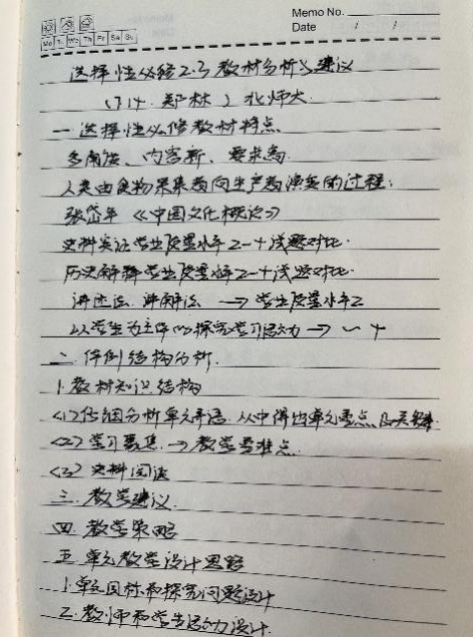 Memo No.
Date / /
Mo Tu We Th Fr Sa Su
选择性必修2.3教材分析与建议
(7.14. 郑林) 北师大
一.选择性必修教材特点
多角度、内容新、要求高
人类由食物采集者向生产者演变的过程:
张岱年《中国文化概论》
史料实证学业质量水平2-4浅题对比.
历史解释学业质量水平2-4浅题对比.
讲述法、讲解法 → 学业质量水平2
以学生为主体的探究学习活动 → 4
二.体例结构分析.
1.教材知识结构
<1>仔细分析单元导语.从中得出单元重点及关键.
<2>学习聚焦.→教学重难点.
<3>史料阅读
三.教学建议.
四.教学策略
五.单元教学设计思路
1.单元目标和探究问题设计
2.教师和学生活动设计.